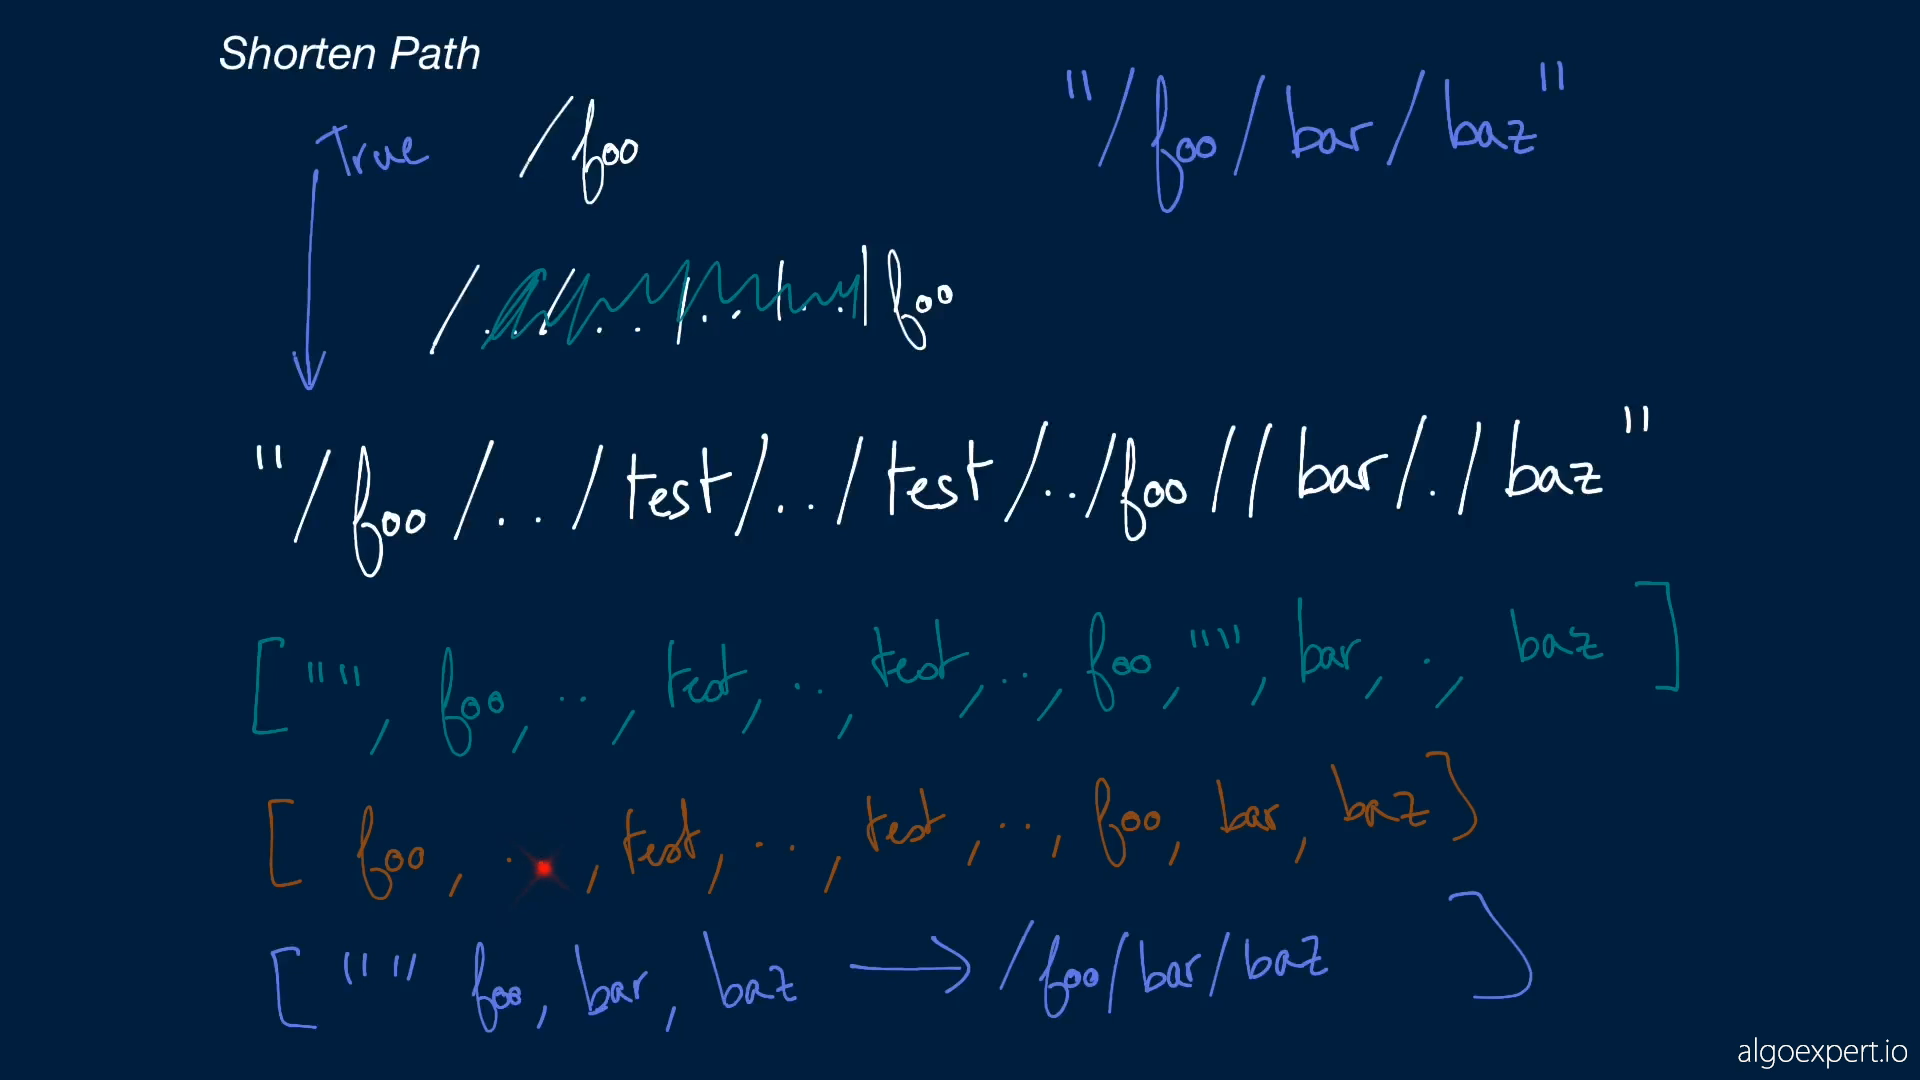 Shorten Path
"/foo/bar/baz"
True /foo
/../../../../foo
"/foo/../test/../test/../foo//bar/./baz"
["", foo, .., test, .., test, .., foo, "", bar, ., baz]
[foo, .., test, .., test, .., foo, bar, baz]
["" foo, bar, baz → /foo/bar/baz ]
algoexpert.io